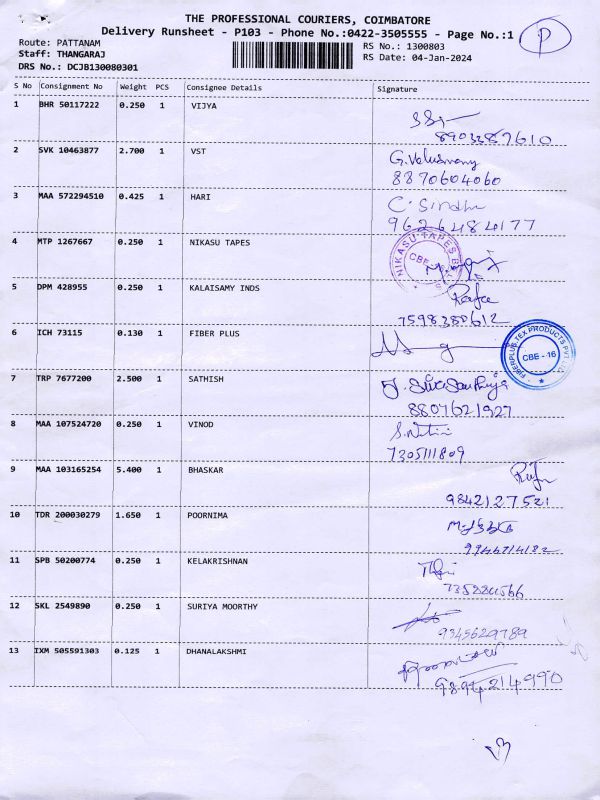 THE PROFESSIONAL COURIERS, COIMBATORE
Delivery Runsheet - P103 - Phone No.:0422-3505555 - Page No.:1
P
Route: PATTANAM
RS No.: 1300803
Staff: THANGARAJ
RS Date: 04-Jan-2024
DRS No.: DCJB130080301
S No Consignment No Weight PCS Consignee Details Signature
1 BHR 50117222 0.250 1 VIJYA
8903287610
2 SVK 10463877 2.700 1 VST G.Velusamy
8870604060
3 MAA 572294510 0.425 1 HARI C. Sindhu
9626484177
4 MTP 1267667 0.250 1 NIKASU TAPES
NIKASU TAPES
CBE
5 DPM 428955 0.250 1 KALAISAMY INDS
7598380612
6 ICH 73115 0.130 1 FIBER PLUS
FIBERPLUS TEX PRODUCTS PVT LTD
CBE - 16
7 TRP 7677200 2.500 1 SATHISH
8807621927
8 MAA 107524720 0.250 1 VINOD
7305111809
9 MAA 103165254 5.400 1 BHASKAR
9842127521
10 TDR 200030279 1.650 1 POORNIMA
11 SPB 50200774 0.250 1 KELAKRISHNAN
12 SKL 2549890 0.250 1 SURIYA MOORTHY
9345629789
13 IXM 505591303 0.125 1 DHANALAKSHMI
9894214990